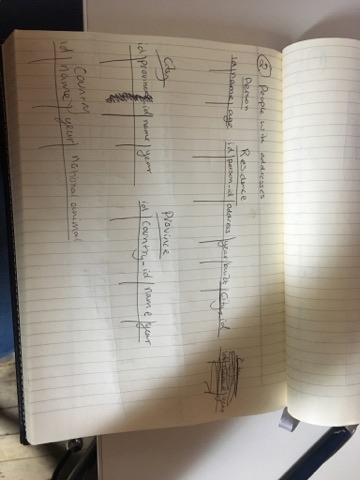 ② People with addresses
Person
id | name | age
Residence
id | person_id | address | year built | City_id
City
id | province_id | name | year
Province
id | country_id | name | year
Country
id | name | year | national animal